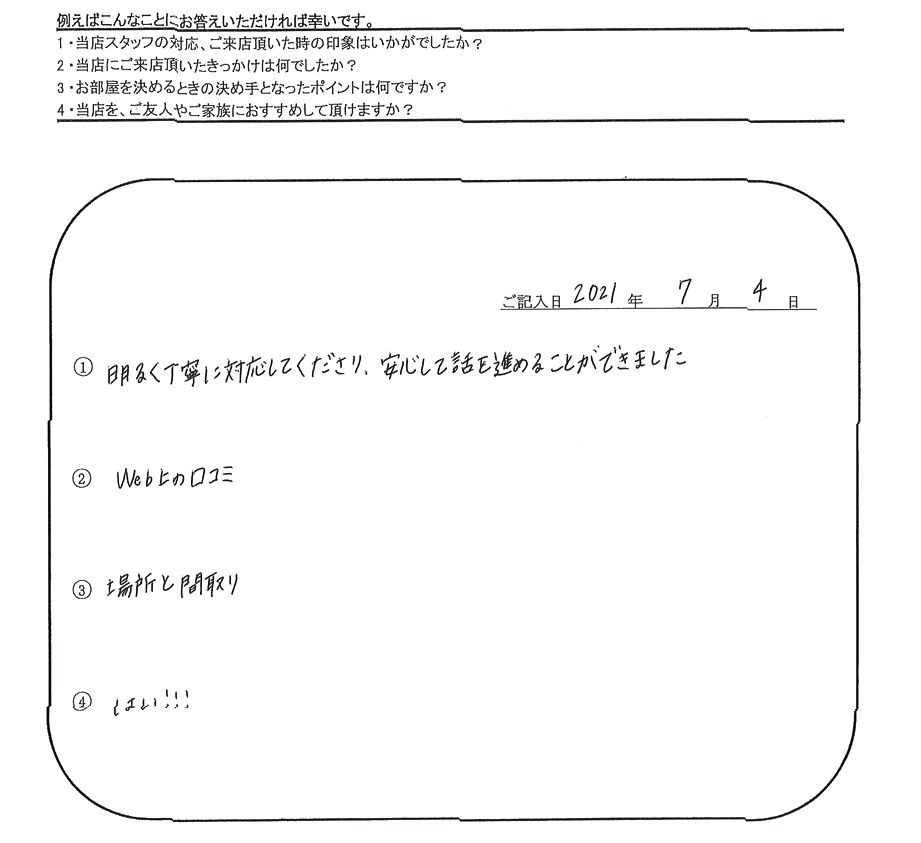 例えばこんなことにお答えいただければ幸いです。
1・当店スタッフの対応、ご来店頂いた時の印象はいかがでしたか?
2・当店にご来店頂いたきっかけは何でしたか?
3・お部屋を決めるときの決め手となったポイントは何ですか?
4・当店を、ご友人やご家族におすすめして頂けますか?
ご記入日 2021 年 7 月 4 日
① 明るく丁寧に対応してくださり、安心して話を進めることができました
② Web上の口コミ
③ 場所と間取り
④ はい!!!